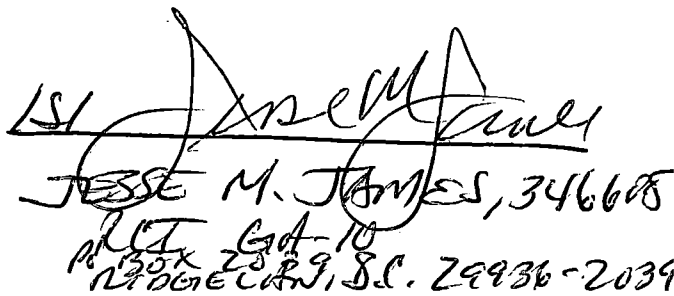 /S/ Jesse M James
JESSE M. JAMES, 346605
RCI GA-10
PO BOX 2039
RIDGELAND, S.C. 29936-2039